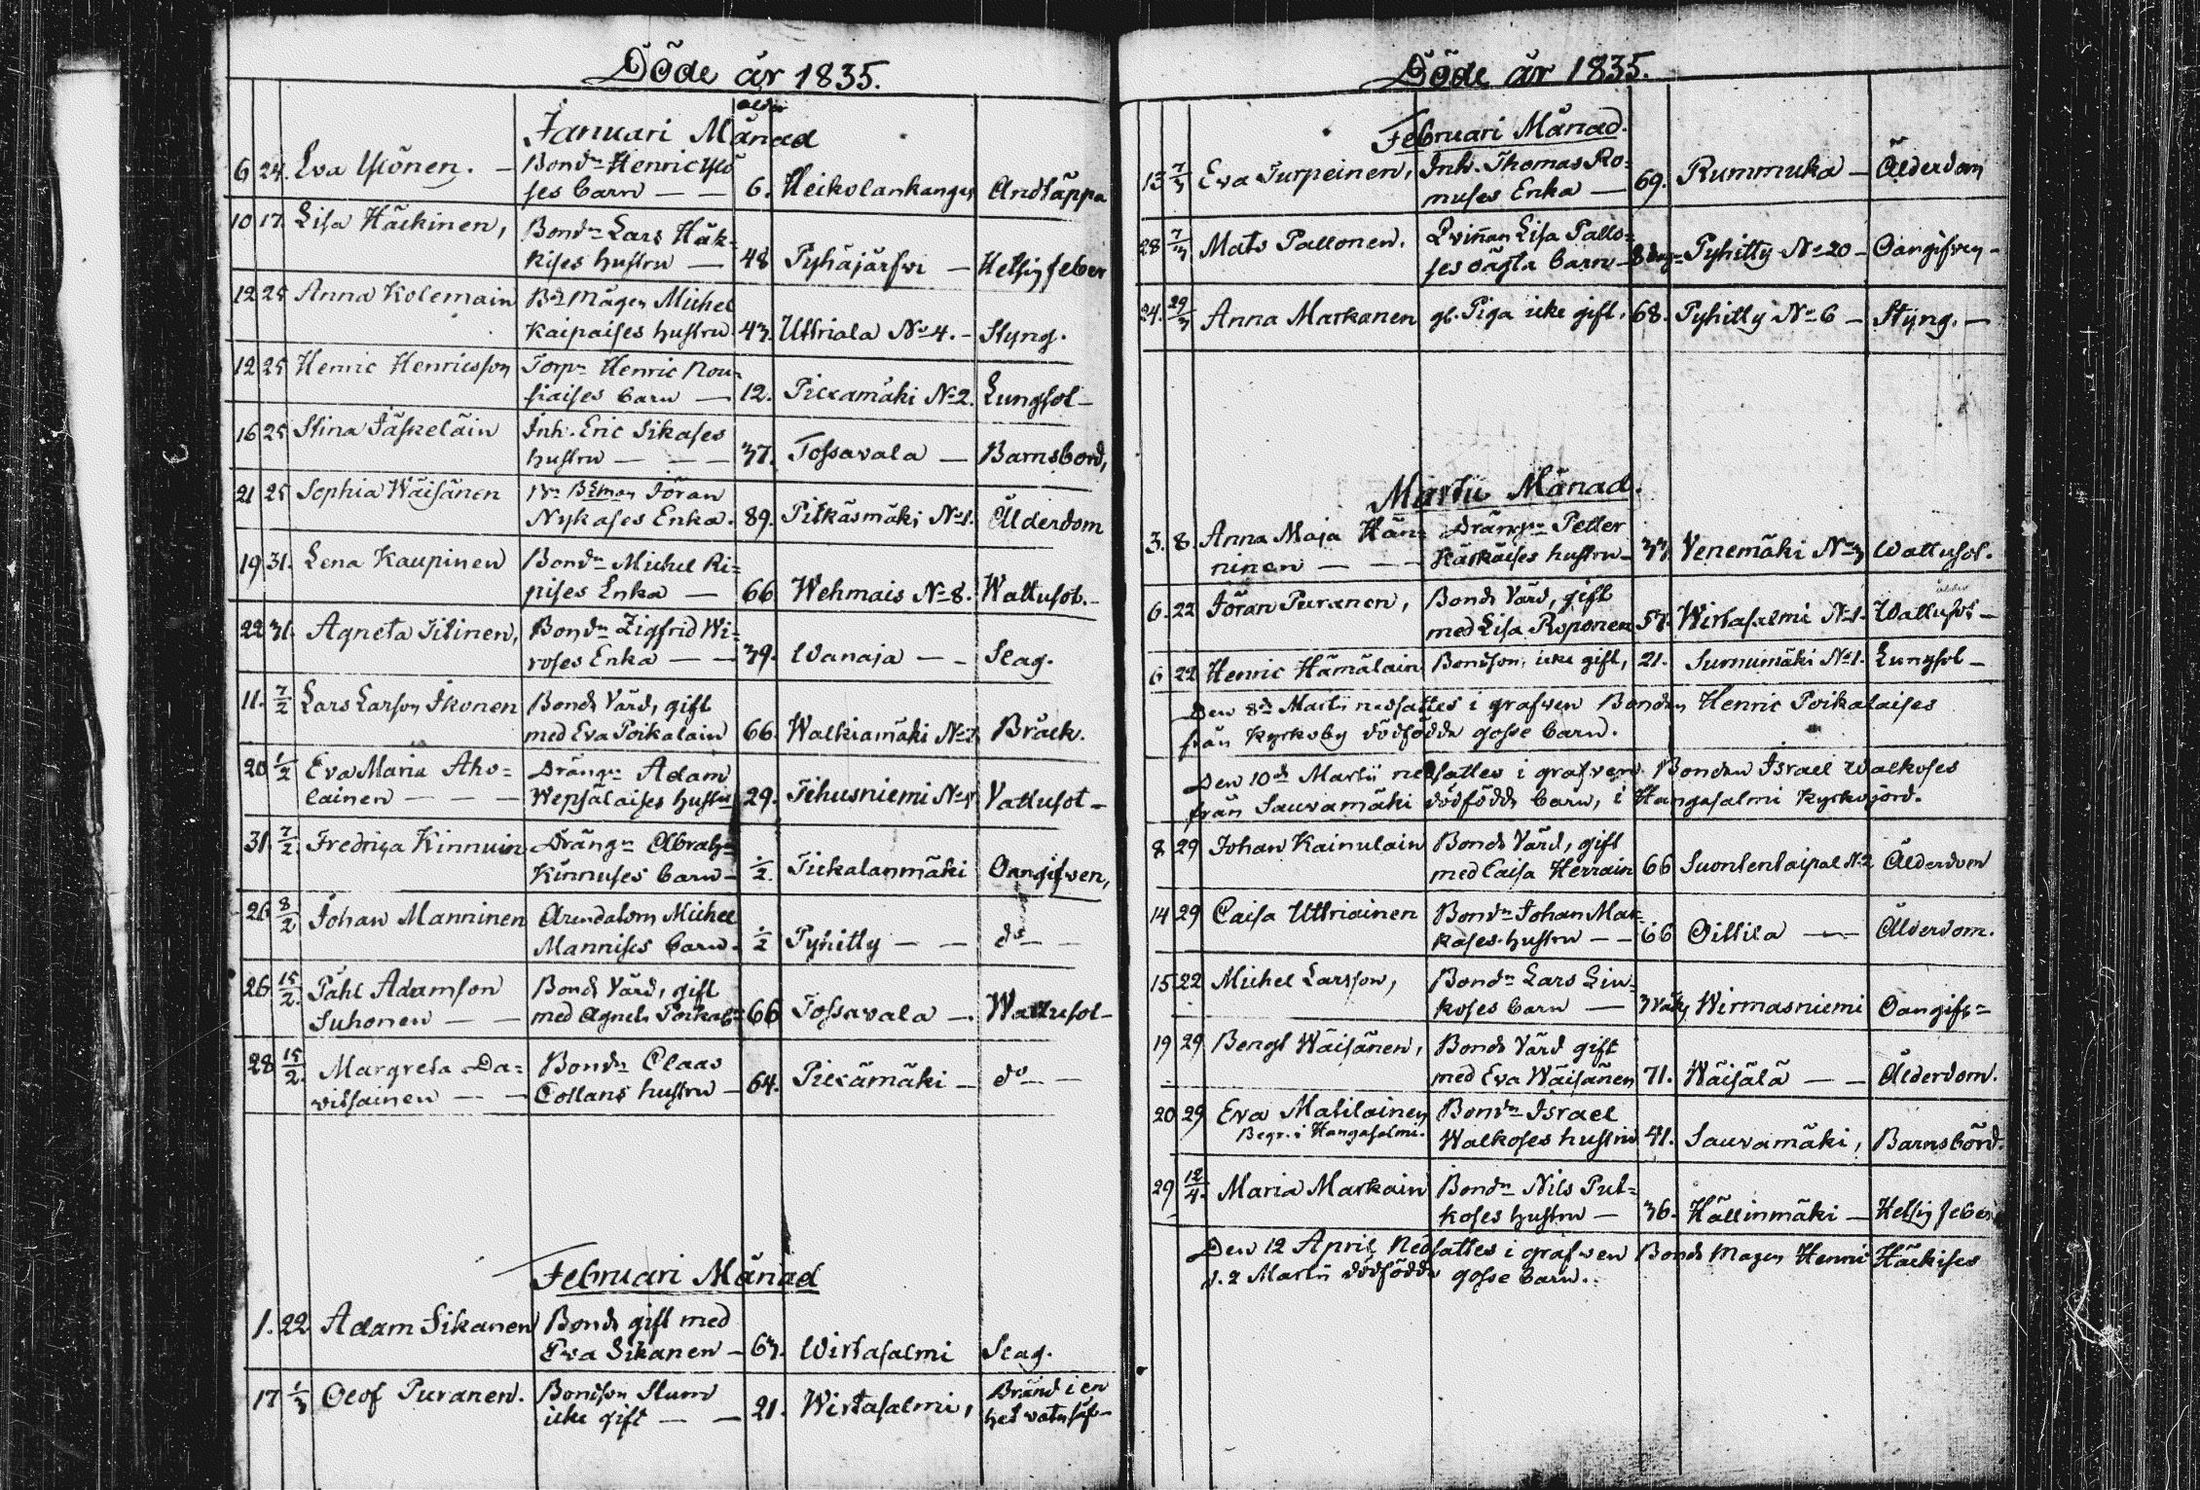 Döde år 1835.
ålder
Januari Månad
6 24. Eva Ylönen. — Bondn Henric Ylö
ses barn — — 6. Heikolankangas Andtäppa
10 17. Lisa Häckinen, Bondn Lars Häk-
kises hustru — 48 Pyhäjärfvi — Hetsig feber
12 25 Anna Kolemain Bd Mågen Michel
Kaipaises hustru 43. Uttriala No 4. - Styng.
12 25 Henric Henricsson Torpn Henric Nou-
siaises barn — 12. Piexamäki No 2. Lungsot —
16 25 Stina Jäskeläin Inh. Eric Sikases
hustru — — — 37. Tossavala — Barnsbörd,
21 25 Sophia Wäisänen Jöran
Nykases Enka. 89. Pitkäsmäki No 1. Ålderdom
19 31. Lena Kaupinen Bondn Michel Ri=
pises Enka — 66 Wehmais No 8. Wattusot. -
22 31. Agneta Iitinen, Bondn Zigfrid Wi=
roses Enka — — 39. Wanaja — - Slag.
11. 7/2 Lars Larson Ikonen Bonds Värd, gift
med Eva Poikalain 66. Walkiamäki No 7. Bråck.
20 1/2 Eva Maria Aho= Drängn Adam
lainen — — — Wepsäläises hustru 29. Tihusniemi No 1. Vattusot —
31. 7/2. Fredrica Kinnuin Drängn Abrah=
Kinnuses barn — 1/2. Tiekalanmäki Oangifven,
26 8/2 Johan Manninen Arendatorn Michel
Mannises barn. 1/2 Pyhitty — — do — —
26 15/2. Påhl Adamson Bonds Värd, gift
Suhonen — — med Agneta Poikal= 66 Tossavala —. Wattusot —
28 15/2. Margreta Da= Bondn Claas
vitsainen — — Collans hustru — 64. Piexämäki — do — —
Februari Månad
1. 22 Adam Sikanen Bonds gift med
Eva Sikanen — 63. Wirtasalmi Slag.
17 1/3 Olof Puranen. Bondson Stum Bränd i en
icke gift — — 21. Wirtasalmi, het
Döde år 1835.
Februari Månad.
13 7/3 Eva Turpeinen, Inh. Thomas Ro=
nuses Enka — 69. Rummuka — Ålderdom
28 7/3 Mats Pallonen. Qvinnan Lisa Pallo=
ses oägta barn — 8 dag= Pyhitty No 20 - Oangifven -
24. 29/3 Anna Markanen gl. Piga icke gift, 68. Pyhitty No 6 — Styng. —
Martii Månad.
3. 8. Anna Maja Hän= Drängn Petter
ninen — — — Kärkäises hustru — 33. Venemäki No 3 Wattusot.
6. 22 Jöran Puranen, Bonds Värd, gift
med Lisa Roponen 57. Wirtasalmi No 1. Wattusot —
6 22 Henric Hämälain Bondson, icke gift, 21. Surnumäki No 1. Lungsot —
Den 8de Martii nedsattes i grafven Bonden Henric Poikalaises
från Kyrkoby dödfödde gosse barn.
Den 10de Martii nedsattes i grafven Bonden Israel Walkoses
från Sauvamäki dödfödde barn, i Hangasalmi Kyrkojord.
8 29 Johan Kainulain Bonds Värd, gift
med Caisa Herrain 66 Suontentaipal No 2 Ålderdom
14 29 Caisa Uttriainen Bondn Johan Mar-
kases hustru — — 66 Oittila — Ålderdom.
15 22 Michel Larsson, Bondn Lars Liu-
koses barn — Wirmasniemi Oangifv=
19 29 Bengt Wäisänen, Bonds Värd gift
med Eva Wäisänen 71. Wäisälä — — Ålderdom.
20 29 Eva Matilainen Bondn Israel
Begr. i Hangasalmi. Walkoses hustru 41. Sauvamäki, Barnsbörd.
29 12/4. Maria Markain Bondn Nils Pul=
koses hustru — 36. Hällinmäki — Hetsig feber
Den 12 April Nedsattes i grafven Bonds Mågen Henric Häckises
d. 2 Martii dödfödde gosse barn.